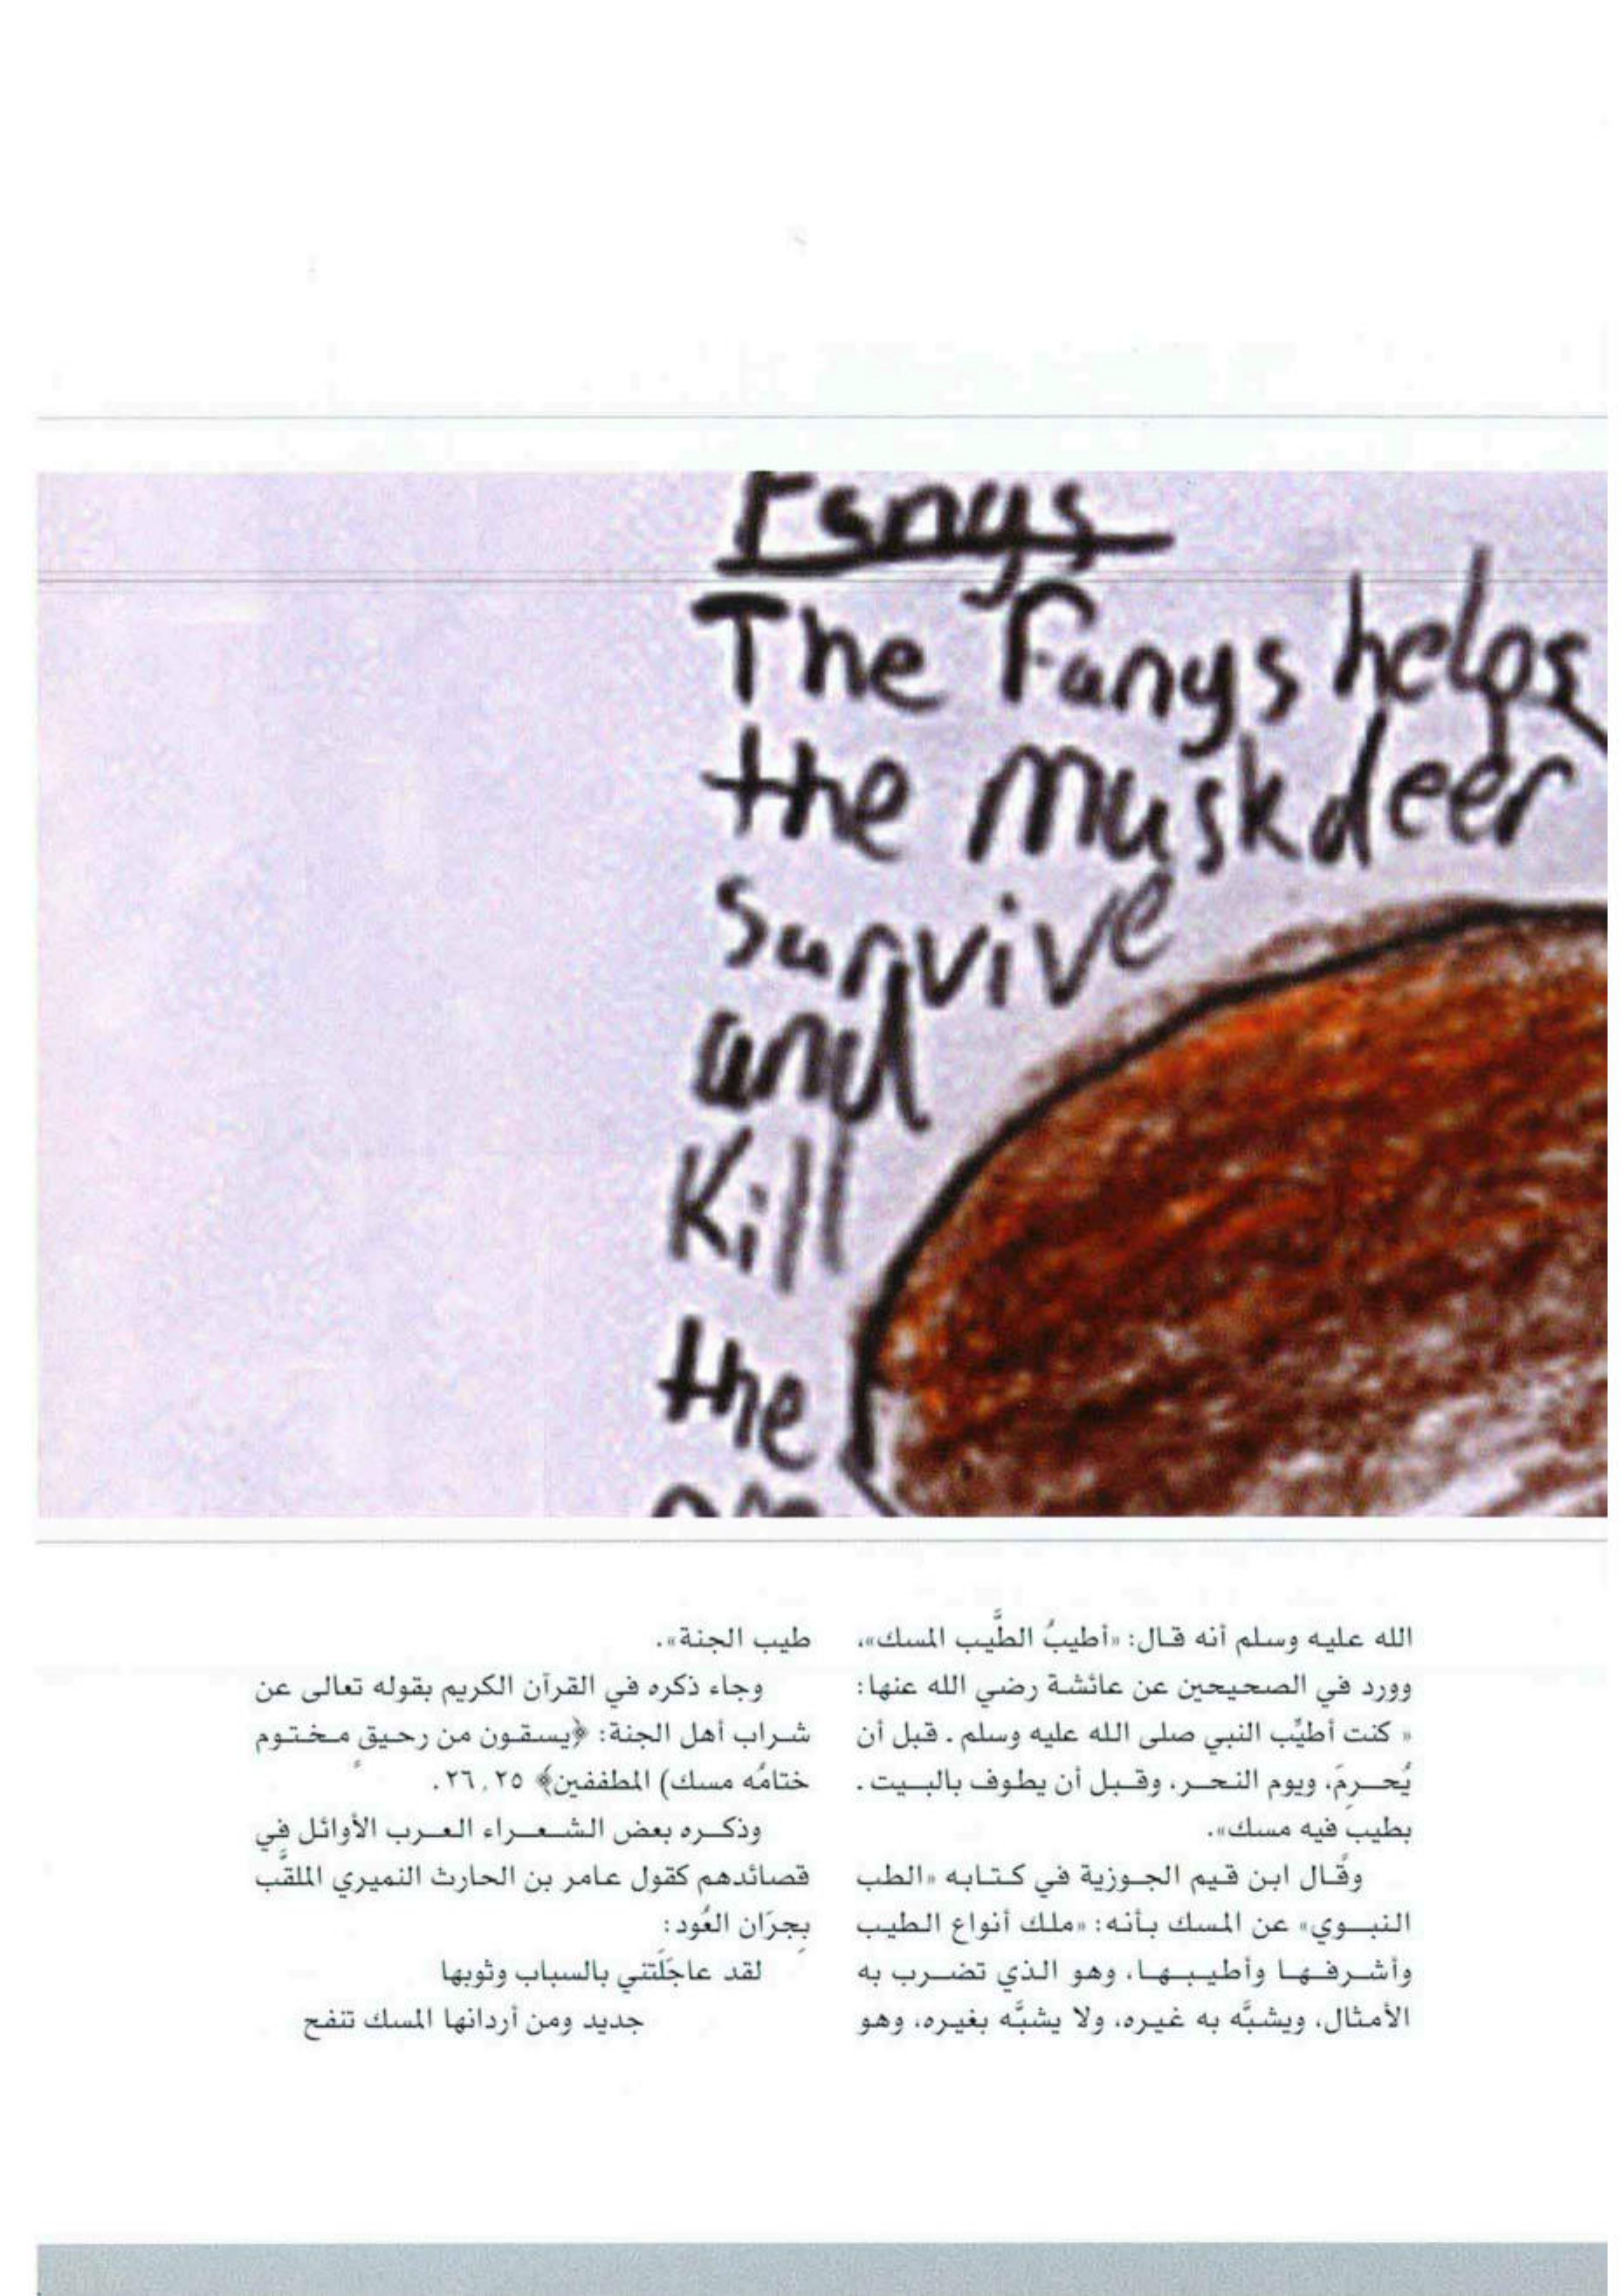 Fangs
The Fangs helps
the muskdeer
survive
and
Kill
the
الله عليه وسلم أنه قال: «أطيبُ الطَّيب المسك»،
وورد في الصحيحين عن عائشة رضي الله عنها:
« كنت أطيِّب النبي صلى الله عليه وسلم . قبل أن
يُحرِمَ، ويوم النحر، وقبل أن يطوف بالبيت .
بطيب فيه مسك».
وقال ابن قيم الجوزية في كتابه «الطب
النبوي» عن المسك بأنه: «ملك أنواع الطيب
وأشرفها وأطيبها، وهو الذي تضرب به
الأمثال، ويشبَّه به غيره، ولا يشبَّه بغيره، وهو
طيب الجنة».
وجاء ذكره في القرآن الكريم بقوله تعالى عن
شراب أهل الجنة: ﴿يسقون من رحيقٍ مختوم
ختامُه مسك) المطففين﴾ ٢٥ ,٢٦ .
وذكره بعض الشعراء العرب الأوائل في
قصائدهم كقول عامر بن الحارث النميري الملقَّب
بِجرَان العُود:
لقد عاجَلَتني بالسباب وثوبها
جديد ومن أردانها المسك تنفح